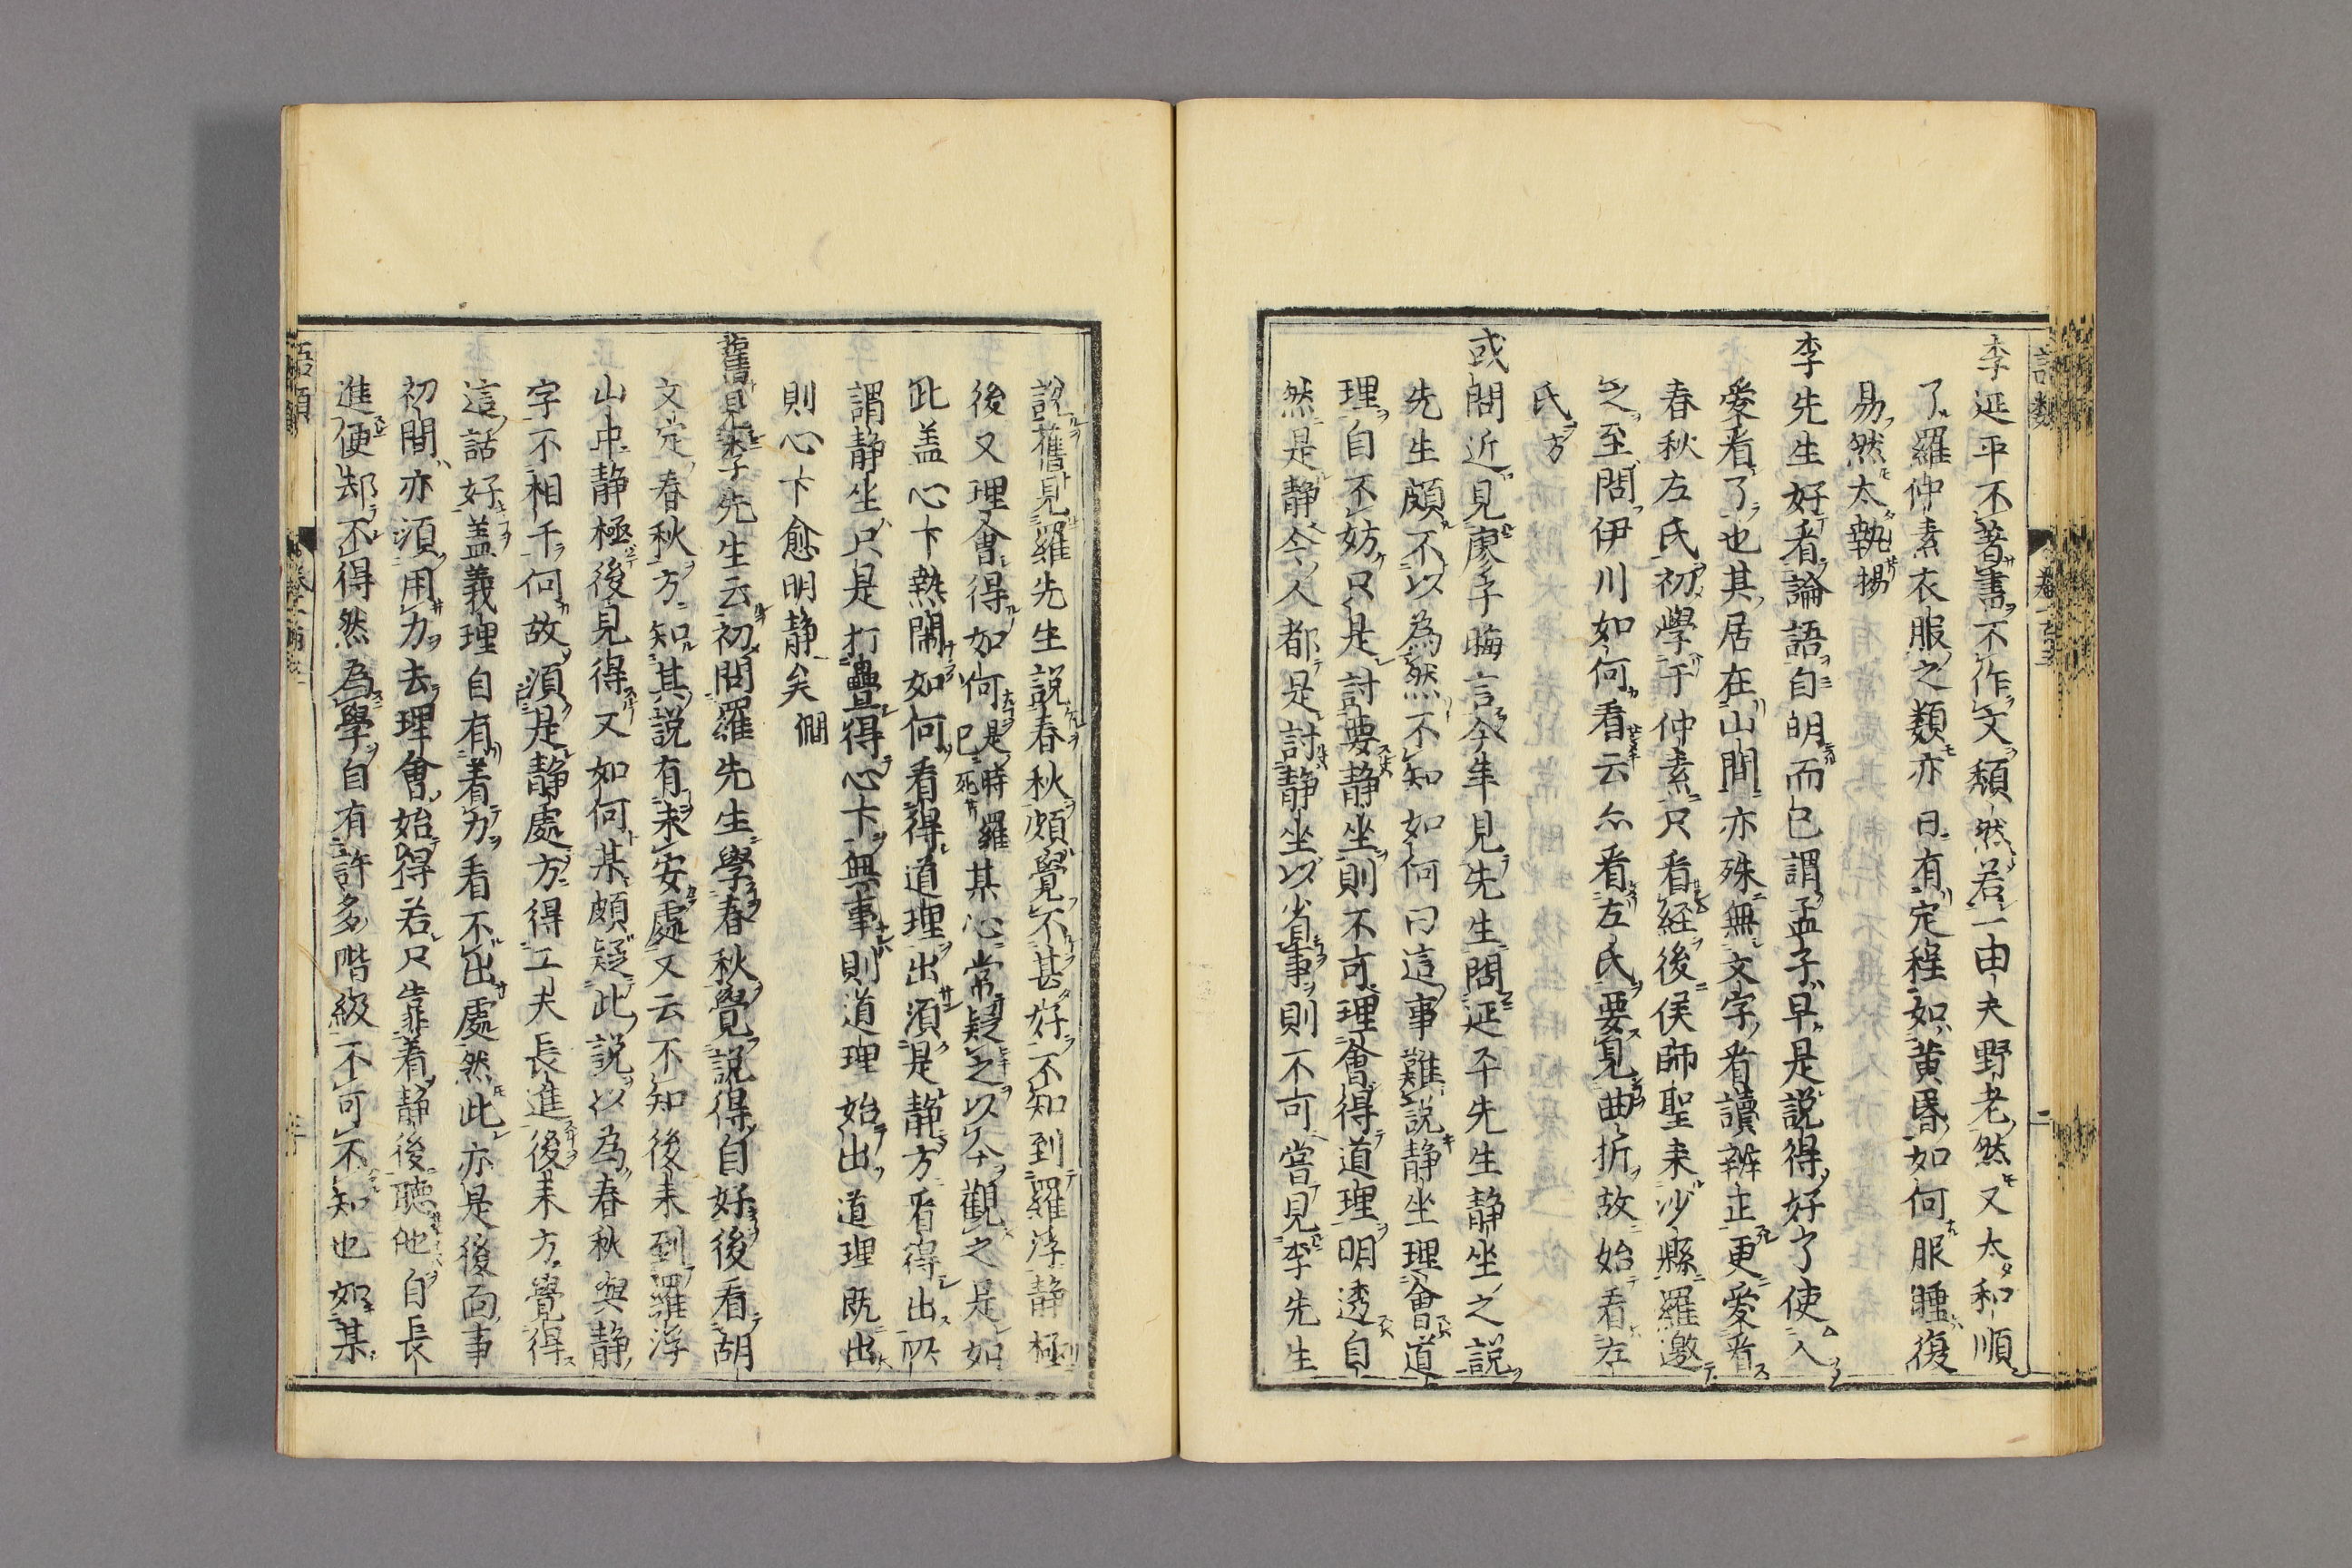 李延平不著書不作文頹然若一田夫野老然又太和順
了羅仲素衣服之類亦日有定程如黄昏如何服睡復
易然太執揚
李先生好看論語自明而已謂孟子早是説得好了使人
愛看了也其居在山間亦殊無文字看讀辨正更愛看
春秋左氏初學于仲素只看経後侯師聖来沙縣羅邀
之至問伊川如何看云亦看左氏要見曲折故始看左
氏方
或問近見廖子晦言今年見先生問延平先生静坐之説
先生頗不以為然不知如何曰這事難説静坐理會道
理自不妨只是討要静坐則不可理會得道理明透自
然是静今人都是討静坐以省事則不可嘗見李先生
説舊見羅先生説春秋頗覺不甚好不知到羅浮静極
後又理會得如何是時羅已死某心常疑之以今觀之是如
此盖心下熱閙如何看得道理出須是静方看得出所
謂静坐只是打疊得心下無事則道理始出道理既出
則心下愈明静矣僩
舊見李先生云初問羅先生學春秋覺説得自好後看胡
文定春秋方知其説有未安處又云不知後来到羅浮
山中静極後見得又如何某頗疑此説以為春秋與静
字不相干何故須是静處方得工夫長進後来方覺得
這話好盖義理自有着力看不出處然此亦是後面事
初間亦須用力去理會始得若只靠着静後聴他自長
進便却不得然為學自有許多階級不可不知也如某